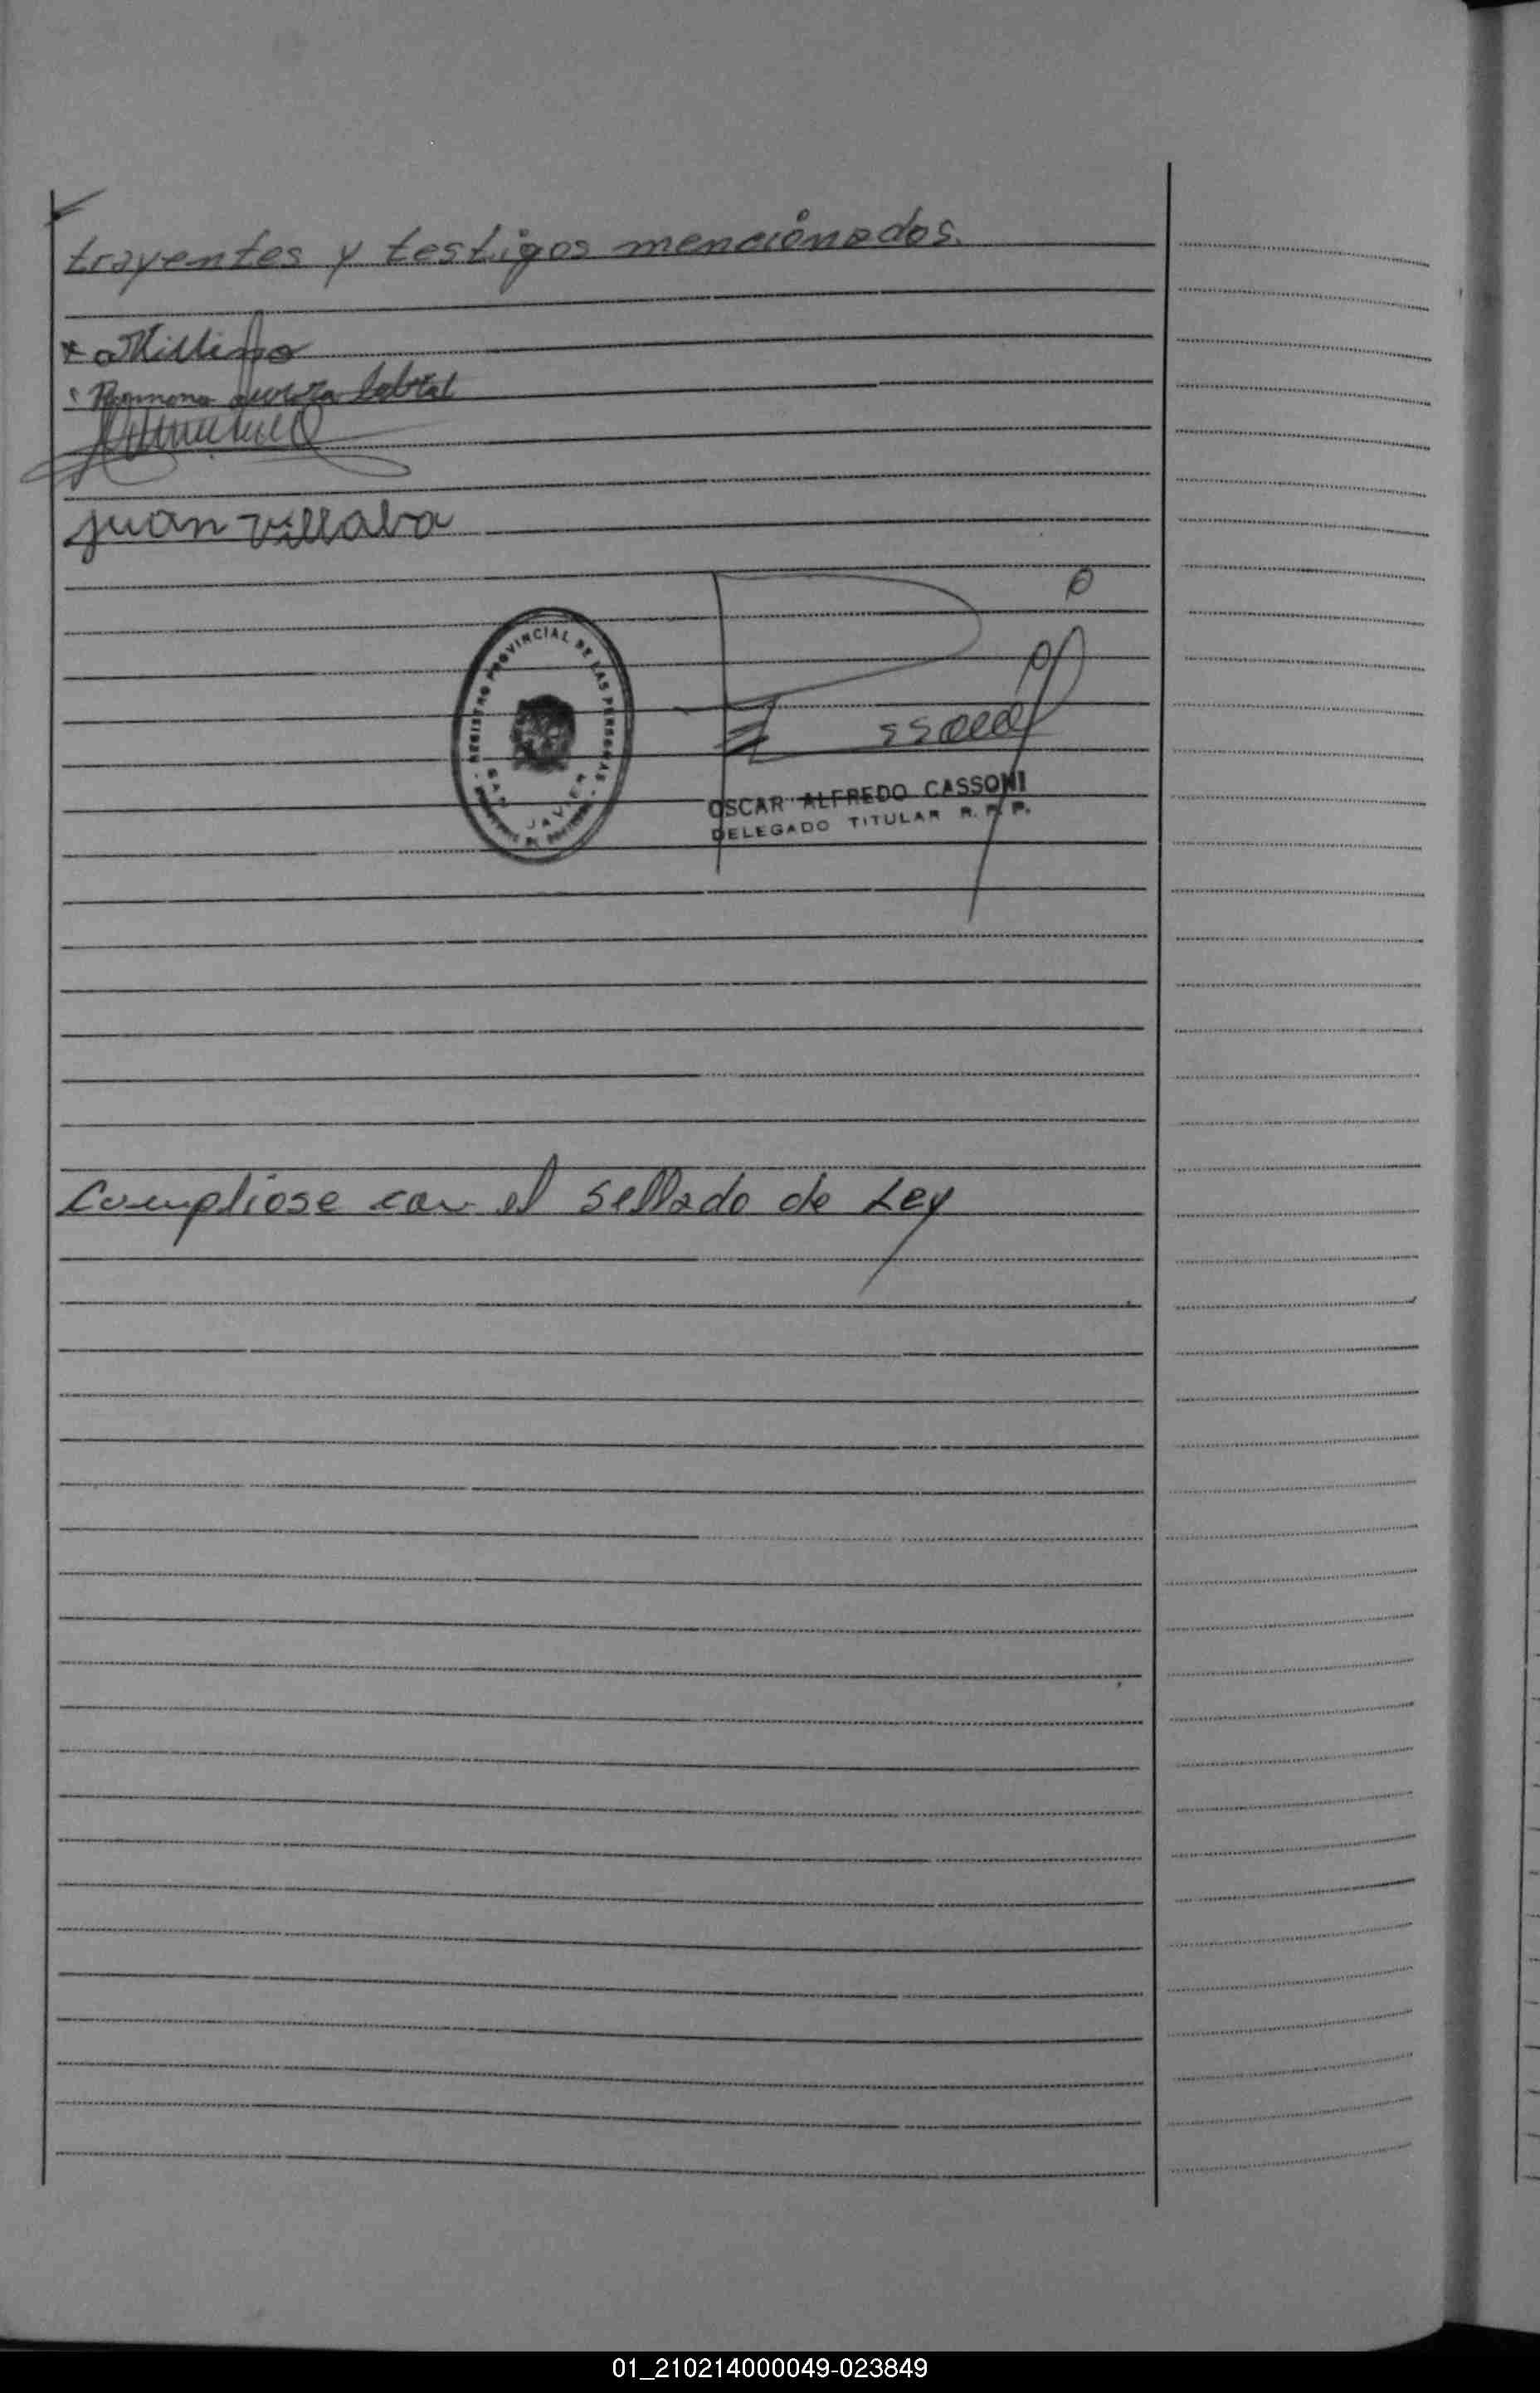 trayentes y testigos mencionados.
Ramona Aurora Cabral
Juan Villalva
REGISTRO PROVINCIAL DE LAS PERSONAS
SAN JAVIER
OSCAR ALFREDO CASSONI
DELEGADO TITULAR R. P. P.
Cumpliose con el sellado de Ley
01_210214000049-023849